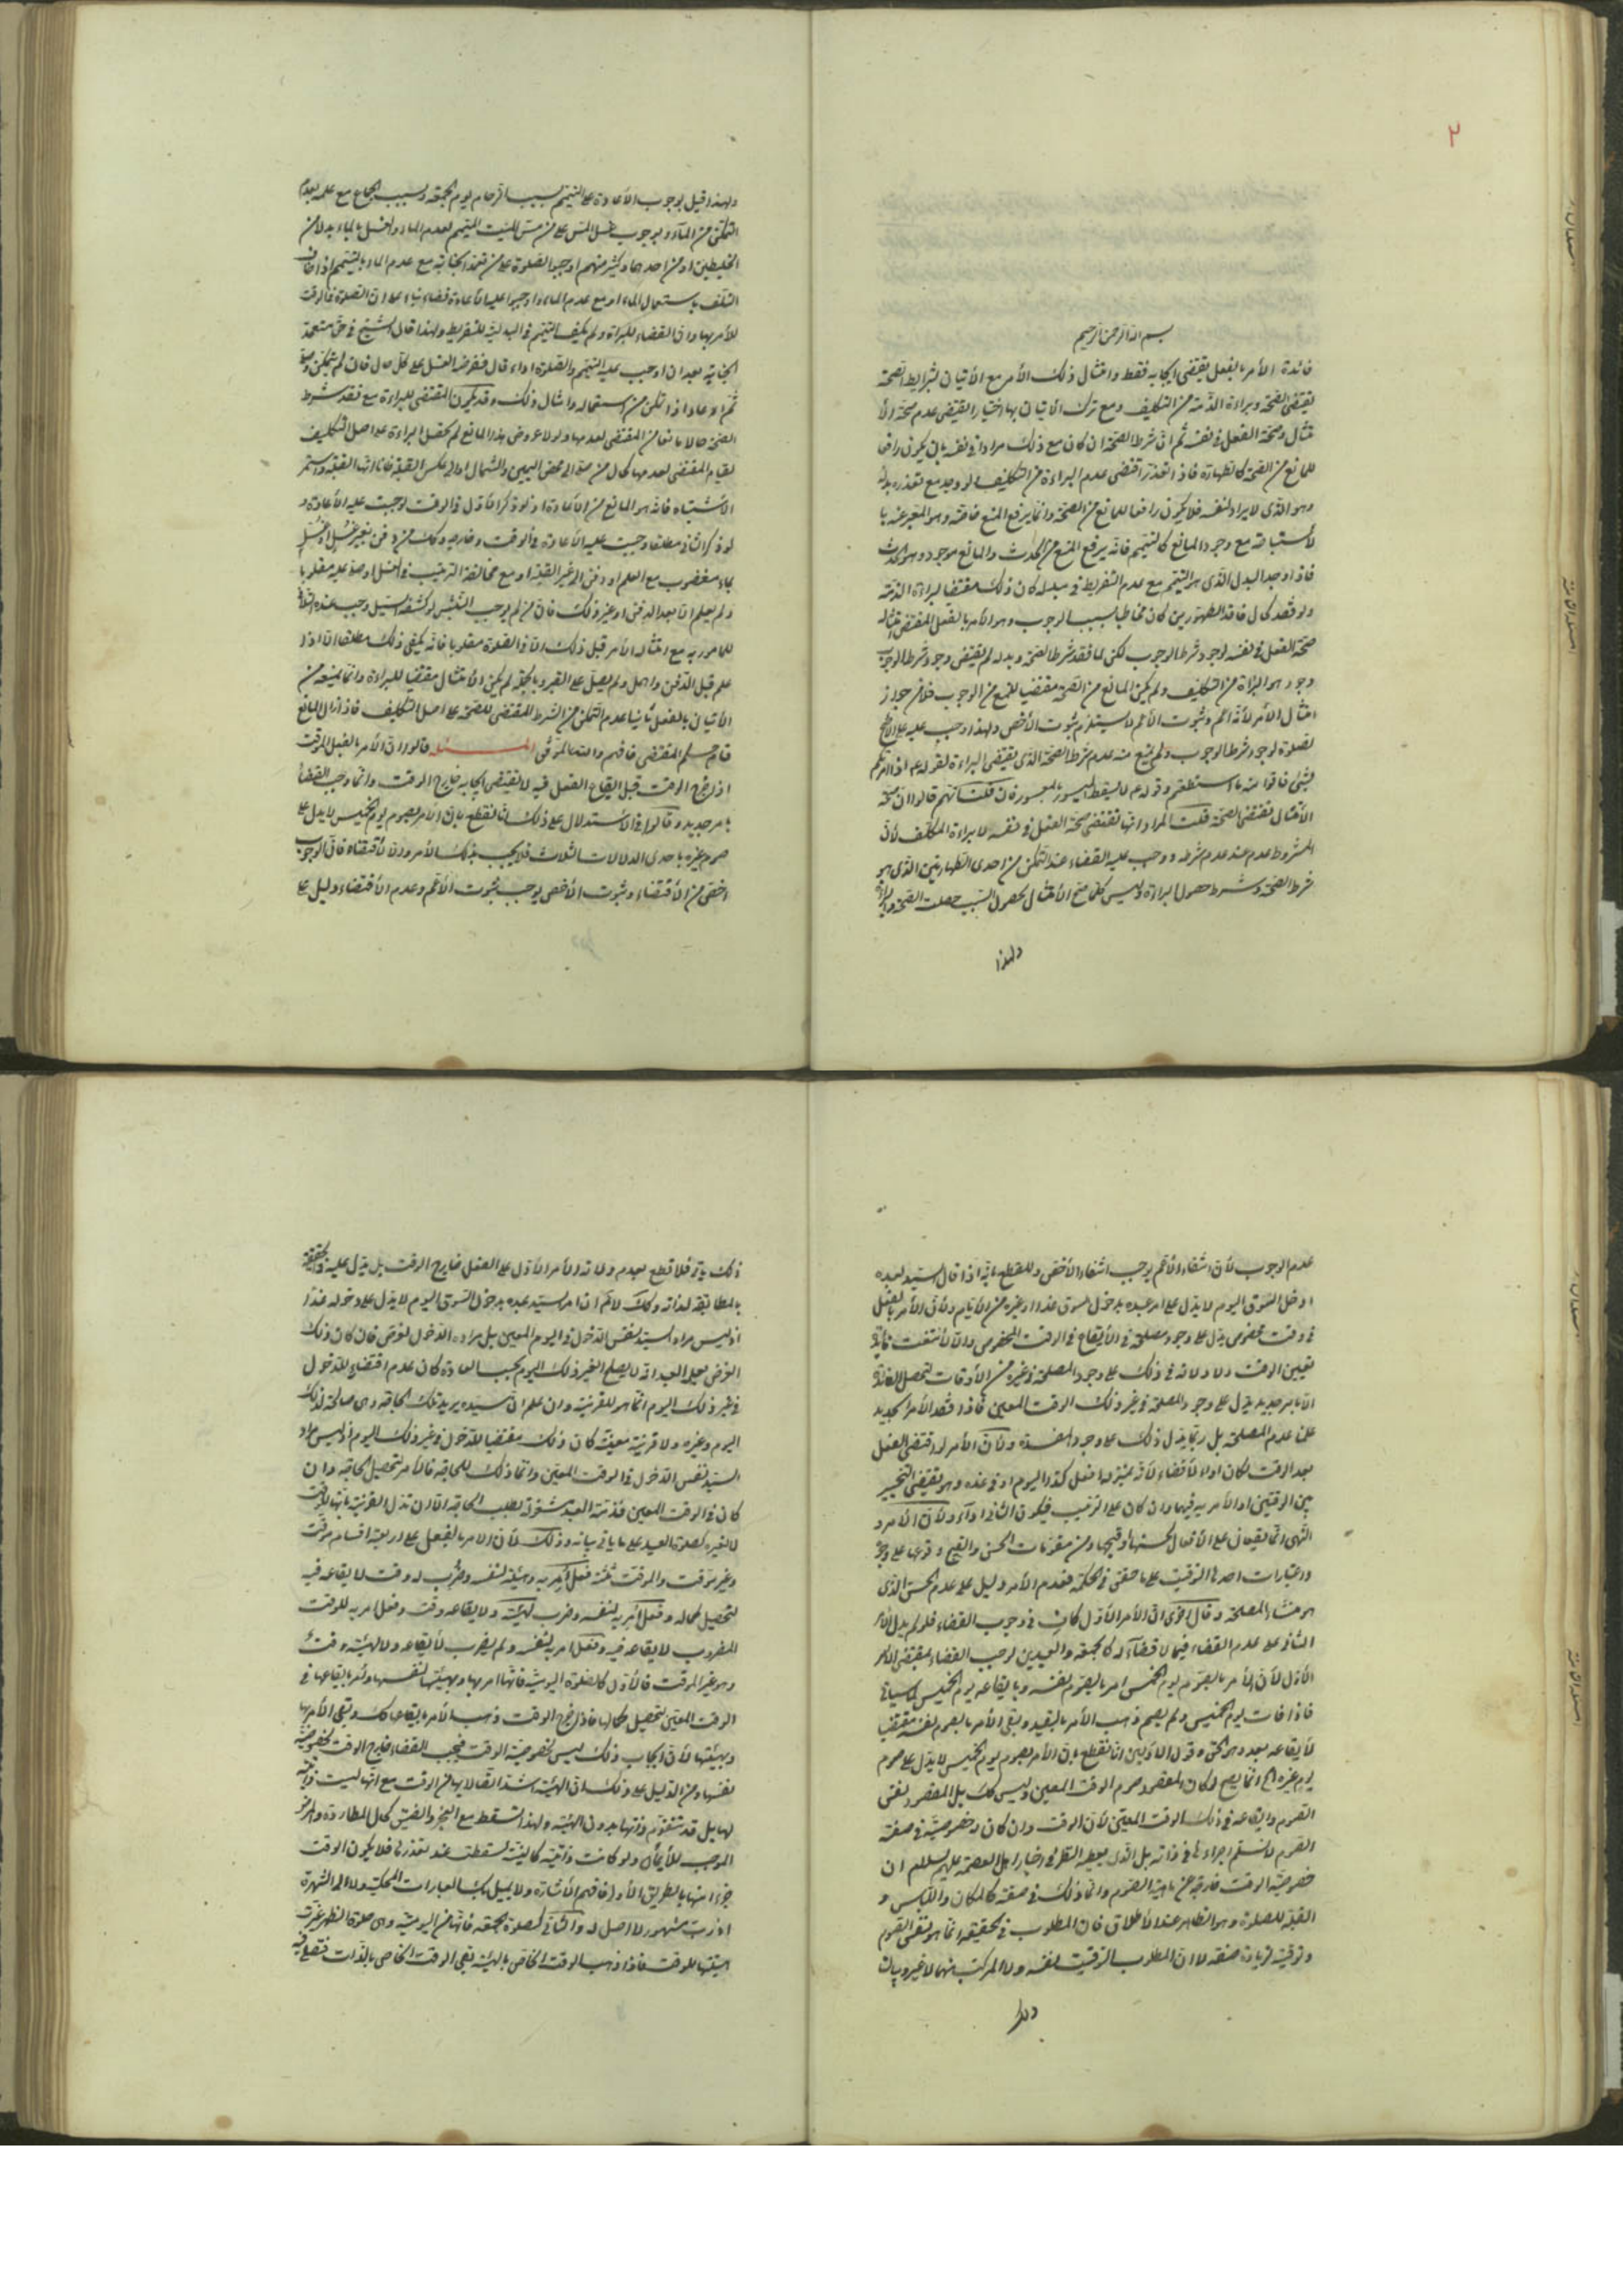 ٢
بسم الله الرحمن الرحيم
فائدة الأمر بالفعل يقتضى ايجابه فقط وامتثال ذلك الأمر مع الأتيان بشرايط الصحة
يقتضى الصحة وبراءة الذمة من التكليف ومع ترك الاتيان بها اختيارا يقتضى عدم صحة الأ
متثال وصحة الفعل فى نفسه ثم ان شرط الصحة ان كان مع ذلك مرادا فى نفسه بان يكون رافعا
للمانع من الصحة كالطهارة فاذا تعذر اقتضى عدم البراءة من التكليف لو وجد مع تعذره بدله
وهو الذى لا يراد لنفسه فلا يكون رافعا للمانع من الصحة وانما يرفع المنع خاصة وهو المعبر عنه با
لأستباحة مع وجود المانع كالتيمم فانه يرفع المنع من الحدث والمانع موجود وهو الحدث
فاذا وجد البدل الذى هو التيمم مع عدم التفريط فى مبدله كان ذلك مقتضيا لبراءة الذمة
ولو فقد كحال فاقد الطهورين كان مخاطبا بسبب الوجوب وهو الأمر بالفعل المقتضى امتثاله
صحة الفعل فى نفسه لوجود شرط الوجوب لكن لما فقد شرط الصحة وبدله لم يقتض وجود شرط الوجوب
وجود هو البراءة من التكليف ولم يكن المانع من الصحة مقتضيا للمنع من الوجوب خلا من جواز
امتثال الأمر لأنه اعم وثبوت الأعم لا يستلزم ثبوت الأخص ولهذا وجب عليه على الأصح
الصلوة لوجود شرط الوجوب ولم يمنع منه عدم شرط الصحة الذى يقتضى البراءة لقوله ع اذا امرتكم
بشئ فاتوا منه ما استطعتم وقوله ع لا يسقط الميسور بالمعسور فان قلت انهم قالوا ان صحة
الأمتثال تقتضى الصحة قلت المراد انها تقتضى صحة الفعل فى نفسه لا براءة المكلف لأن
المشروط عدم عند عدم شرطه ووجب عليه القضاء عند التمكن من احدى الطهارتين الذى هو
شرط الصحة وشرط حصول البراءة وليس كلما صح الأمتثال لحصول السبب حصلت الصحة والبراءة
ولهذا
ولهذا قيل بوجوب الأعادة على المتيمم بسبب الزحام يوم الجمعة وبسبب الجماع مع علمه بعدم
التمكن من الماء وبوجوب غسل المس على من مس الميت الميمم لعدم الماء والغسل بالماء بدلا من
الخليطين او من احدهما وكثير منهم اوجبوا الصلوة على من تعمد الجنابة مع عدم الماء بالتيمم اذا خاف
التلف باستعمال الماء او مع عدم الماء واوجبوا عليه الأعادة قضاء بناء على ان الصلوة فى الوقت
للأمر بها وان القضاء للبراءة ولم يكف التيمم فى البدلية للتفريط ولهذا قال الشيخ فى حق متعمد
الجنابة بعد ان اوجب عليه التيمم والصلوة اداء قال ففرضه الغسل على كل حال فان لم يتمكن تيمم
ثم اعاد اذا تمكن من استعماله وامثال ذلك وقد يكون المقتضى للبراءة مع فقد شرط
الصحة حالا مانعا من المقتضى لعدمها ولولا عروض هذا المانع لم تحصل البراءة على اصل التكليف
لقيام المقتضى لعدمها كحال من صلى الى محض اليمين والشمال او الى عكس القبلة ظانا انها القبلة واستمر
الأشتباه فانه هو المانع من الأعادة اذ لو ذكر الأول فى الوقت لوجبت عليه الأعادة و
لو ذكر الثانى مطلقا وجبت عليه الأعادة فى الوقت وخارجه وكمن دفن بغير غسل او غسل
بماء مغصوب مع العلم او دفن الى غير القبلة او مع مخالفة الترتيب فى الغسل او صلى عليه مقلوبا
ولم يعلم الا بعد الدفن او غير ذلك فان من لم يوجب النبش
للمأمور به مع امتثاله الأمر قبل ذلك الا فى الصلوة مقلوبا فانه يكفى ذلك مطلقا اذا
علم قبل الدفن واهمل ولم يصل على القبر وبالجملة لم يكن الأمتثال مقتضيا للبراءة وانما يمنعه من
الأتيان بالفعل ثانيا عدم التمكن من الشرط المقتضى للصحة على اصل التكليف فاذا زال المانع
قام حكم المقتضى فافهم والله الموفق المسئلة قالوا ان الأمر بالفعل الموقت
اذا خرج الوقت قبل ايقاع الفعل فيه لا يقتضى ايجابه خارج الوقت وانما وجب القضاء
بامر جديد وقالوا فى الاستدلال على ذلك انا نقطع بان الأمر بصوم يوم الخميس لا يدل على
صوم غيره باحدى الدلالات الثلاث فلا يجب بذلك الأمر والا لأقتضاه فان الوجوب
اخص من الأقتضاء وثبوت الأخص يوجب ثبوت الأعم وعدم الأقتضاء دليل على
عدم الوجوب لأن انتفاء الأعم يوجب انتفاء الأخص وللقطع بانه اذا قال السيد لعبده
ادخل السوق اليوم لا يدل على امر عبده بدخول السوق غدا او غيره من الأيام ولأن الأمر بالفعل
فى وقت مخصوص يدل على وجود مصلحة فى الأيقاع فى الوقت المخصوص والا لأنتفت فائدة
تعيين الوقت ولا دلالة فى ذلك على وجود المصلحة فى غيره من الأوقات لتحصل الفائدة
الا بامر جديد يدل على وجود المصلحة فى غير ذلك الوقت المعين فاذا فقد الأمر الجديد
علم عدم المصلحة بل ربما يدل ذلك على وجود المفسدة ولأن الأمر لو اقتضى الفعل
بعد الوقت لكان اداء لا قضاء لأنه بمنزلة افعل كذا اليوم او فى غده وهو يقتضى التخيير
بين الوقتين او الأمر به فيهما وان كان على الترتيب فيكون الثانى اداء ولأن الأمر و
النهى انما يقعان على الأفعال لحسنها وقبحها ومن مقومات الحسن والقبح وقوعها على وجوه
واعتبارات احدها التوقيت على ما حقق فى الحكمة فعدم الأمر دليل على عدم الحسن الذى
هو منشاء المصلحة وقال اخرون ان الأمر الأول كاف فى وجوب القضاء فلو لم يدل الأمر
الثانى على عدم القضاء فيما لا قضاء له كالجمعة والعيدين لوجب القضاء بمقتضى الأمر
الأول لأن الأمر بالصوم يوم الخميس امر بالصوم نفسه وبايقاعه يوم الخميس
فاذا فات يوم الخميس ولم يصم ذهب الأمر بالقيد وبقى الأمر بالصوم لنفسه مقتضيا
لأيقاعه بعده وهو الحق وقول الاولين انا نقطع بان الأمر بصوم يوم الخميس لا يدل على صوم
يوم غيره الخ انما يصح لو كان المقصود صوم الوقت المعين وليس كك بل المقصود نفس
الصوم وايقاعه فى ذلك الوقت المعين لأن الوقت وان كان له خصوصية فى صفة
الصوم لا نسلم اجراءها فى ذاته بل الذى يعطيه النظر فى اخبار اهل العصمة عليهم السلام ان
خصوصية الوقت خارجة عن ماهية الصوم وانما ذلك فى صفته كالمكان واللباس و
القبلة للصلوة وهو الظاهر عند الأطلاق فان المطلوب فى الحقيقة انما هو نفس الصوم
وتوقيته لزيادة صفة لا ان المطلوب التوقيت نفسه ولا المركب منهما لا غير وبيان
ذلك يأتى فلا قطع بعدم دلالة الأمر الأول على الفعل خارج الوقت بل يدل عليه فى الحقيقة
بالمطابقة لذاته وكك لا نم ان امر السيد عبده بدخول السوق اليوم لا يدل على دخوله غدا
اذ ليس مراد السيد نفس الدخول فى اليوم المعين بل مراده الدخول لغرض فان كان ذلك
الغرض يعلم العبد انه لا يصلح لغير ذلك اليوم بحسب العادة كان عدم اقتضاء الدخول
فى غير ذلك اليوم انما هو للقرينة وان علم ان سيده يريد تلك الحاجة وهى صالحة لذلك
اليوم وغيره ولا قرينة معينة كان ذلك مقتضيا للدخول فى غير ذلك اليوم اذ ليس مراد
السيد نفس الدخول فى الوقت المعين وانما ذلك للحاجة فالأمر لتحصيل الحاجة وان
كان فى الوقت المعين فذمة العبد مشغولة بطلب الحاجة الا ان تدل القرينة بانها للوقت
لا لغيره كصلوة العيد على ما يأتى بيانه وذلك لأن الأمر بالفعل على اربعة اقسام موقت
وغير موقت والموقت ثلثة فعل امر به وهيئة لنفسه وضرب له وقت لايقاعه فيه
لتحصيل كماله وفعل امر به لنفسه وضرب لهيئته ولايقاعه وقت وفعل امر به للوقت
المضروب لايقاعه فيه وفعل امر به لنفسه ولم يضرب لأيقاعه ولا لهيئته وقت
وهو غير الموقت فالأول كالصلوة اليومية فانها امر بها وبهيئتها لنفسها وامر بايقاعها فى
الوقت المعين لتحصيل كمالها فاذا خرج الوقت ذهب الأمر بايقاعها كك وبقى الأمر بها
وبهيئتها لأن ايجاب ذلك ليس لخصوصية الوقت فيجب القضاء خارج الوقت لخصوصية
نفسها ومن الدليل على ذلك ان الهيئة اشد اتصالا بها من الوقت مع انها ليست ذاتية
لها بل قد تتقوم ذاتها بدون الهيئة ولهذا تسقط مع العجز والضيق كحال المطاردة والمرض
الموجب للأيماء ولو كانت ذاتية كالنية لسقطت عند تعذرها فلا يكون الوقت
جزءا منها بالطريق الأولى فافهم الأشارة ولا يميل بك العبارات المحكية ولا الى الشهرة
اذ رب مشهور لا اصل له والثانى كصلوة الجمعة فانها من اليومية وهى صلوة الظهر غيرت
هيئتها للوقت فاذا ذهب الوقت الخاص بالهيئة بقى الوقت الخاص بالذات فتصلى فيه